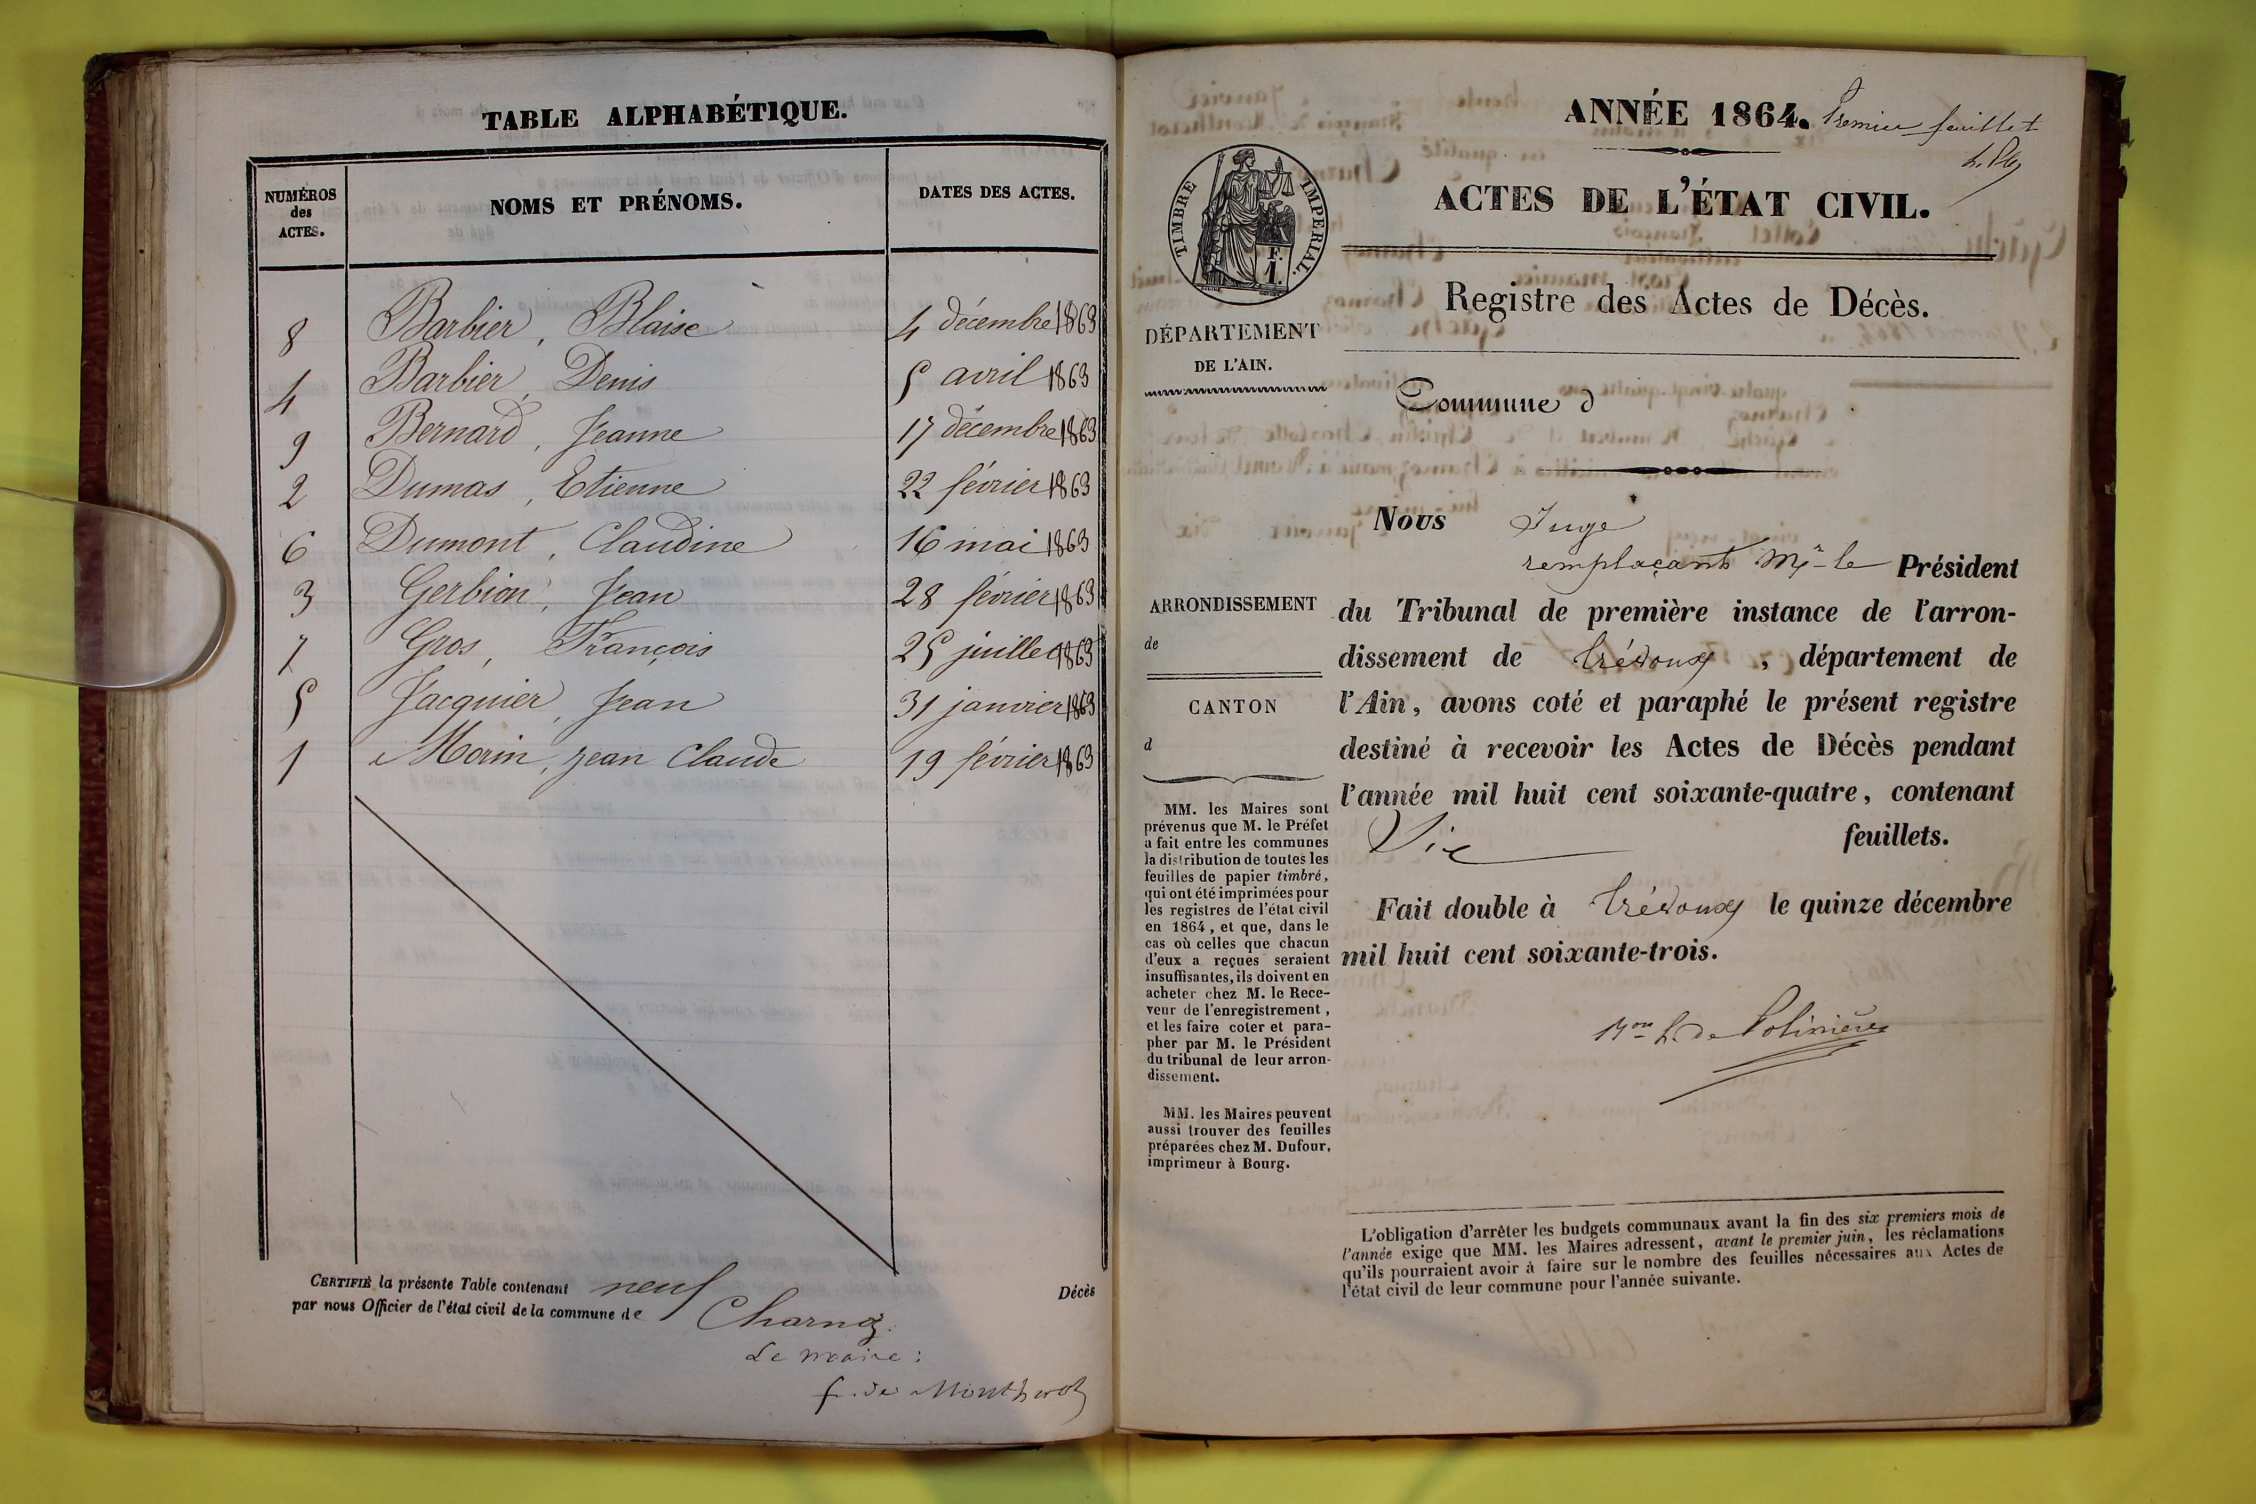 TABLE ALPHABÉTIQUE.
NUMÉROS
des
ACTES.
NOMS ET PRÉNOMS.
DATES DES ACTES.
8 Barbier, Blaise 4 décembre 1863
4 Barbier, Denis 5 avril 1863
9 Bernard, Jeanne 17 décembre 1863
2 Dumas, Etienne 22 février 1863
6 Dumont, Claudine 16 mai 1863
3 Gerbion, Jean 28 février 1863
7 Gros, François 25 juillet 1863
5 Jacquier, Jean 31 janvier 1863
1 Morin, Jean Claude 19 février 1863
CERTIFIÉ la présente Table contenant neuf Décès
par nous Officier de l'état civil de la commune de Charnoz.
Le maire :
f. de Montherot
ANNÉE 1864. Premier feuillet
ACTES DE L'ÉTAT CIVIL.
TIMBRE IMPÉRIAL.
F.
1.
Registre des Actes de Décès.
DÉPARTEMENT
DE L'AIN.
Commune d
Nous Juge
remplaçant Mr le Président
du Tribunal de première instance de l'arron-
dissement de Trévoux, département de
l'Ain, avons coté et paraphé le présent registre
destiné à recevoir les Actes de Décès pendant
l'année mil huit cent soixante-quatre, contenant
Six feuillets.
Fait double à Trévoux le quinze décembre
mil huit cent soixante-trois.
Bon L. de Polinière
ARRONDISSEMENT
de
CANTON
d
MM. les Maires sont
prévenus que M. le Préfet
a fait entre les communes
la distribution de toutes les
feuilles de papier timbré,
qui ont été imprimées pour
les registres de l'état civil
en 1864, et que, dans le
cas où celles que chacun
d'eux a reçues seraient
insuffisantes, ils doivent en
acheter chez M. le Rece-
veur de l'enregistrement,
et les faire coter et para-
pher par M. le Président
du tribunal de leur arron-
dissement.
MM. les Maires peuvent
aussi trouver des feuilles
préparées chez M. Dufour,
imprimeur à Bourg.
L'obligation d'arrêter les budgets communaux avant la fin des six premiers mois de
l'année exige que MM. les Maires adressent, avant le premier juin, les réclamations
qu'ils pourraient avoir à faire sur le nombre des feuilles nécessaires aux Actes de
l'état civil de leur commune pour l'année suivante.